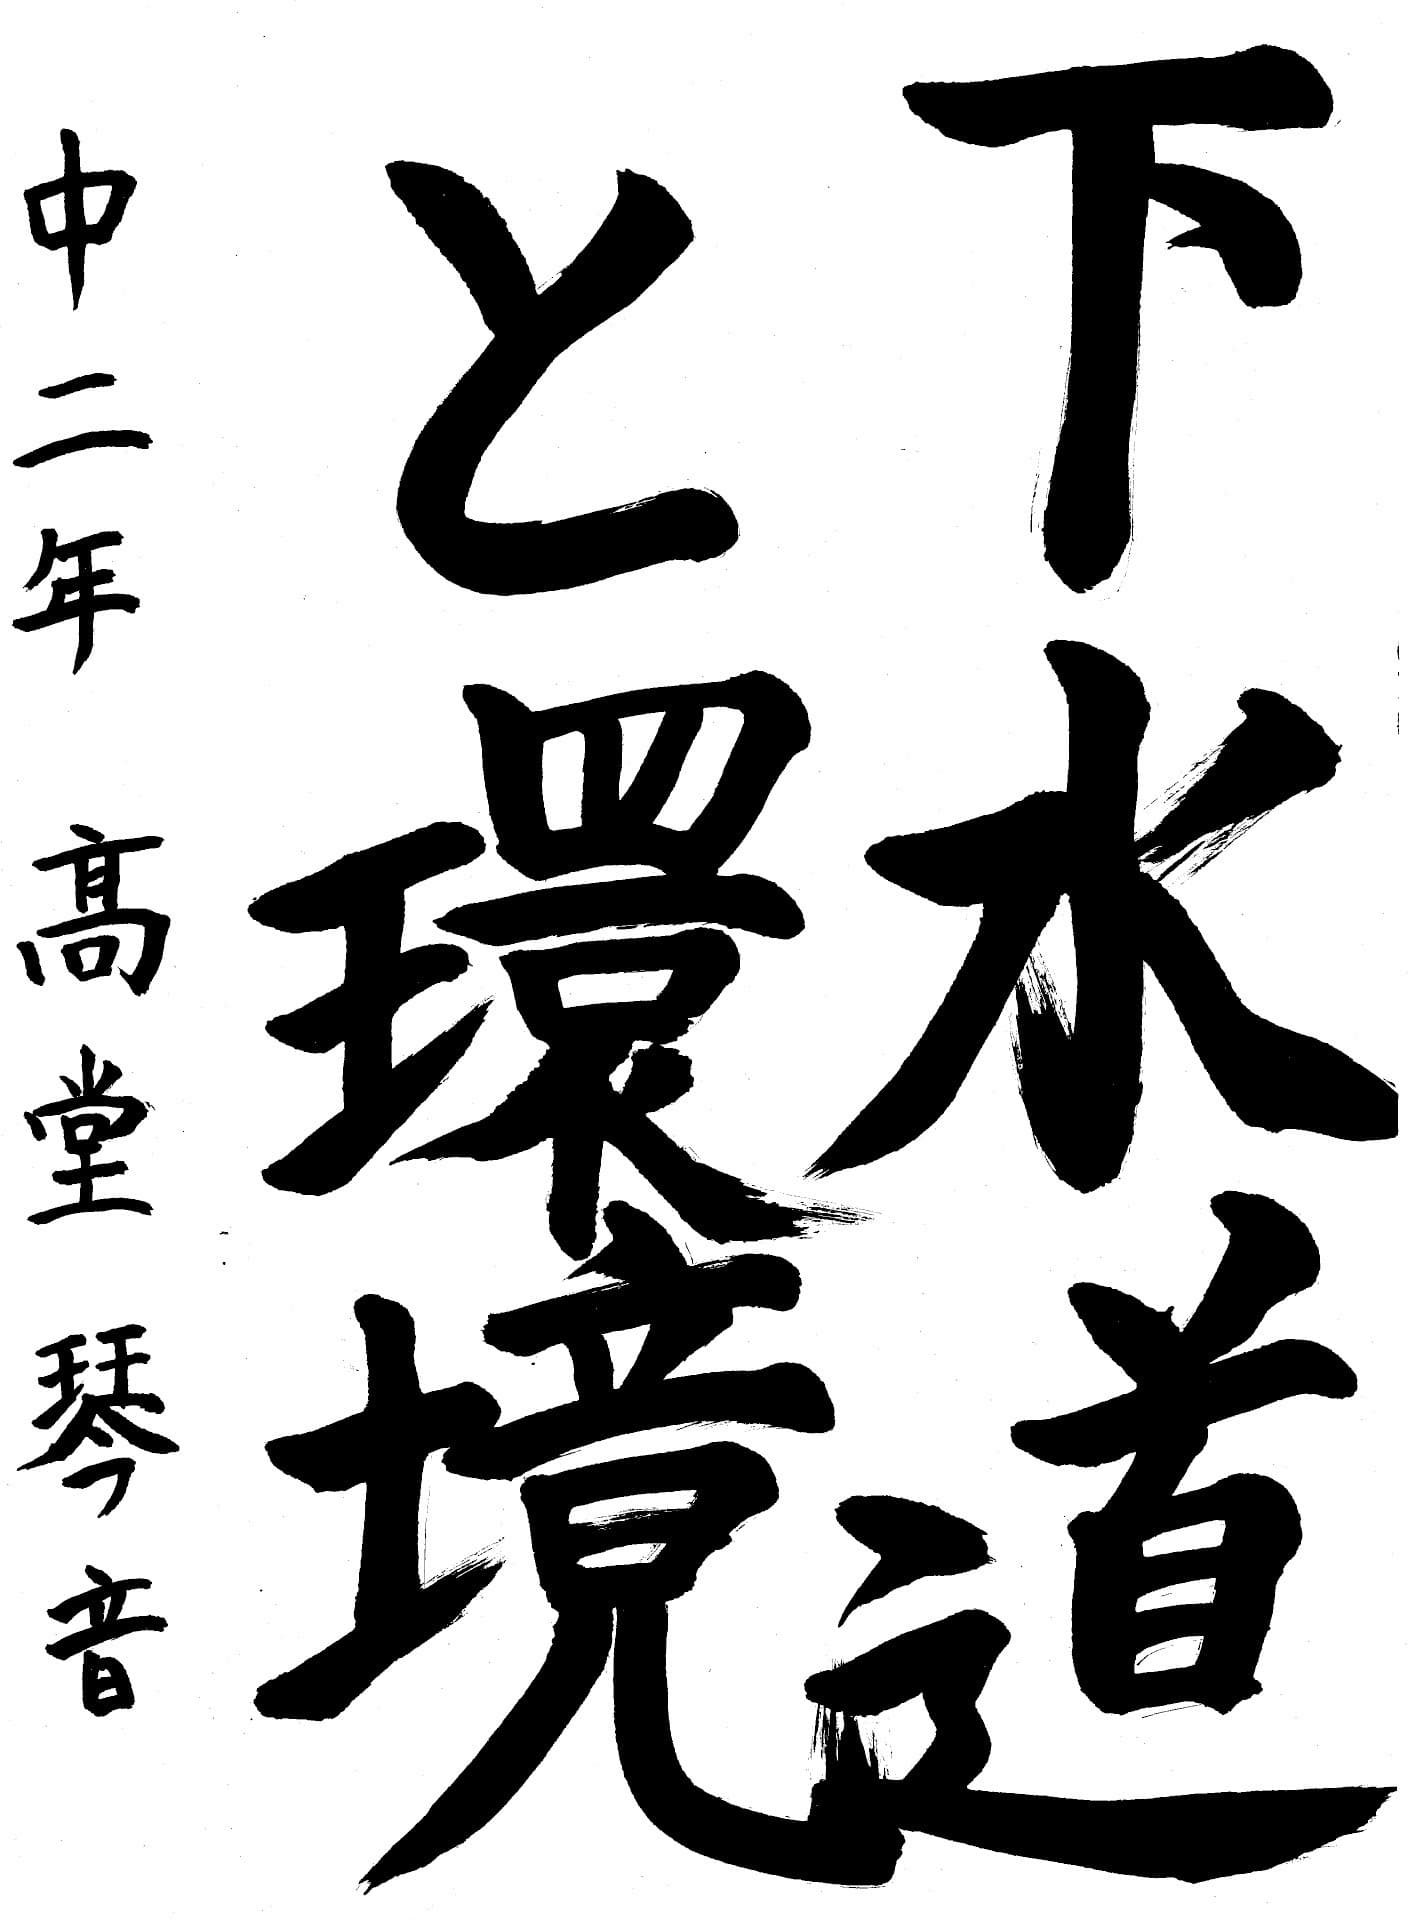 下水道
と環境
中二年 高堂琴音